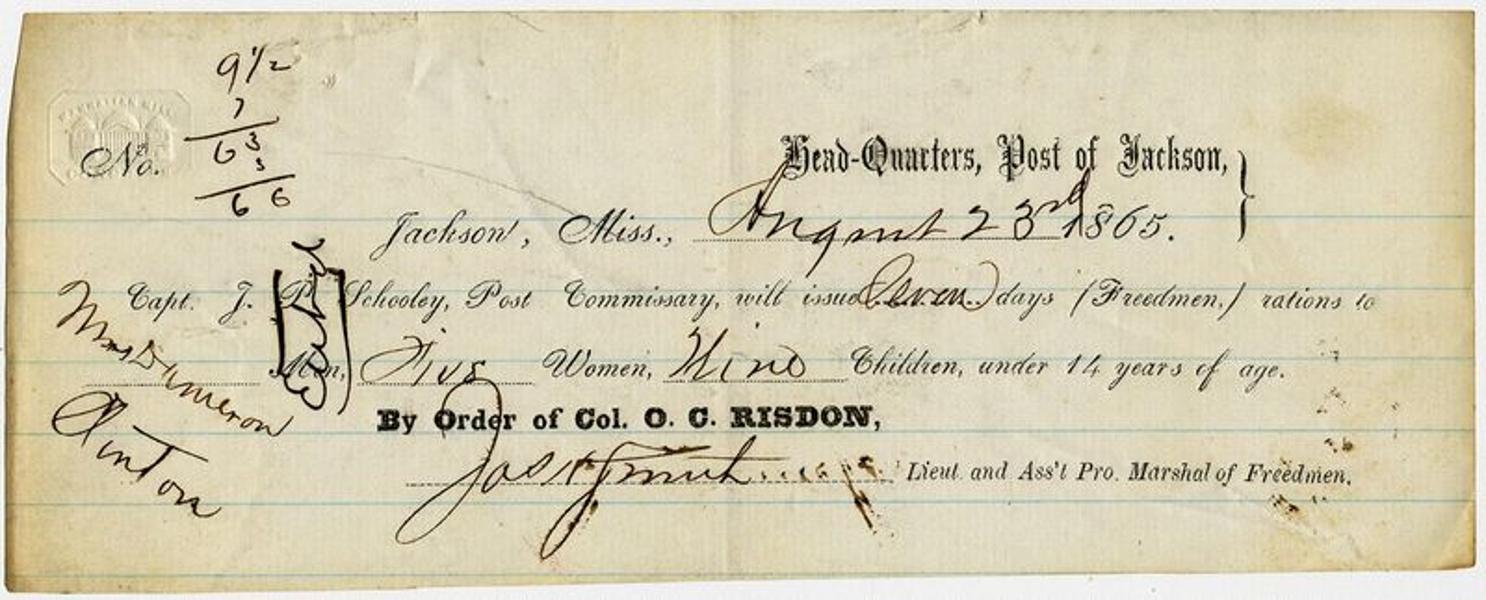 9 1/2
7
63
3
66
No.
Head-Quarters, Post of Jackson,
Jackson, Miss., August 23rd 1865.
Capt. J. P. Schooley, Post Commissary, will issue Seven days (Freedmen,) rations to
Men, Five Women, Nine Children, under 14 years of age.
By Order of Col. O. C. RISDON,
Jas H Lieut and Ass't Pro. Marshal of Freedmen.
Mrs Dameron
Clinton